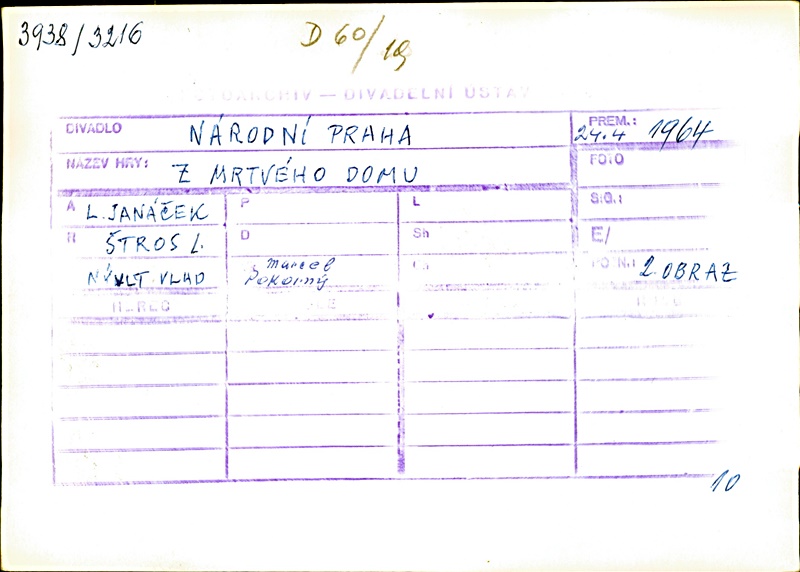 3938/3216
D 60/19
FOTOARCHIV — DIVADELNÍ ÚSTAV
DIVADLO NÁRODNÍ PRAHA PREM.: 24.4 1964
NÁZEV HRY: Z MRTVÉHO DOMU FOTO
A L. JANÁČEK P L SIG.:
R ŠTROS L. D Sh E/
NÝVLT. VLAD Marcel Pokorný 2. OBRAZ
HEREC
10